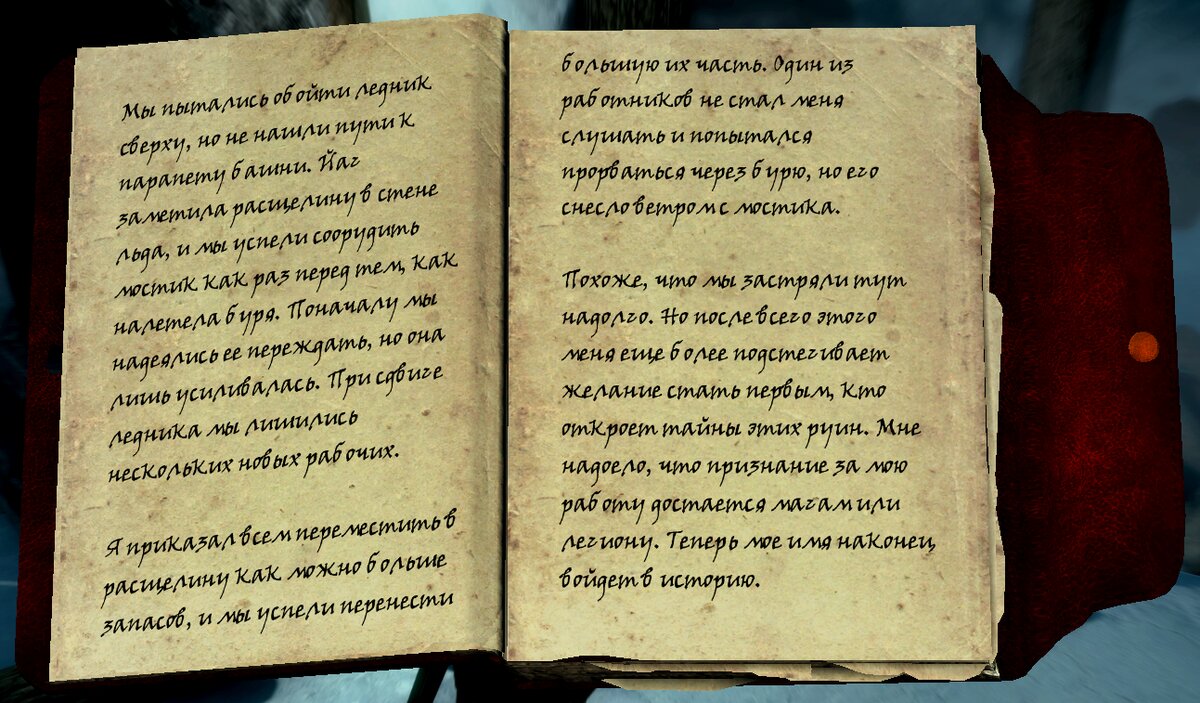 Мы пытались обойти ледник
сверху, но не нашли пути к
парапету башни. Йаг
заметила расщелину в стене
льда, и мы успели соорудить
мостик как раз перед тем, как
налетела буря. Поначалу мы
надеялись ее переждать, но она
лишь усиливалась. При сдвиге
ледника мы лишились
нескольких новых рабочих.
Я приказал всем переместить в
расщелину как можно больше
запасов, и мы успели перенести
большую их часть. Один из
работников не стал меня
слушать и попытался
прорваться через бурю, но его
снесло ветром с мостика.
Похоже, что мы застряли тут
надолго. Но после всего этого
меня еще более подстегивает
желание стать первым, кто
откроет тайны этих руин. Мне
надоело, что признание за мою
работу достается магам или
легиону. Теперь мое имя наконец
войдет в историю.